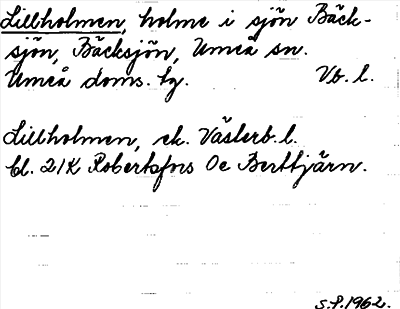 Lillholmen, holme i sjön Bäck-
sjön, Bäcksjön, Umeå sn.
Umeå doms. tg. Vb. l.
Lillholmen, ek. Västerb. l.
bl. 21K Robertsfors Oc Berttjärn.
S.P. 1962.